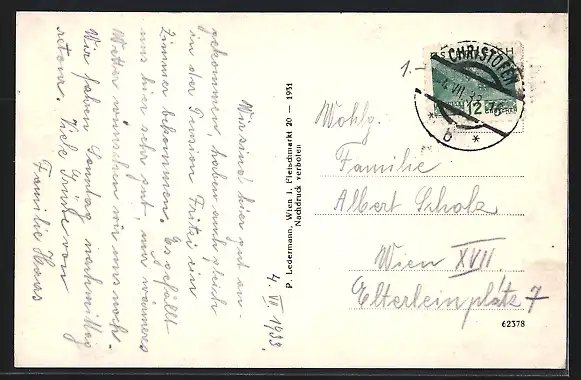 4. VII 1933.
Wir sind hier gut an-
gekommen, haben auch gleich
in der Pension Fritzi ein
Zimmer bekommen. Es gefällt
uns hier sehr gut, nur wärmeres
Wetter wünschen wir uns noch.
Wir fahren Sonntag nachmittag
retour. Viele Grüße von
Familie Hans
P. Ledermann, Wien I. Fleischmarkt 20 – 1931
Nachdruck verboten
1.-
CHRISTOFEN
VII. 33
12
* b *
Wohlg.
Familie
Albert Scholz
Wien XVII.
Elterleinplatz 7
62378